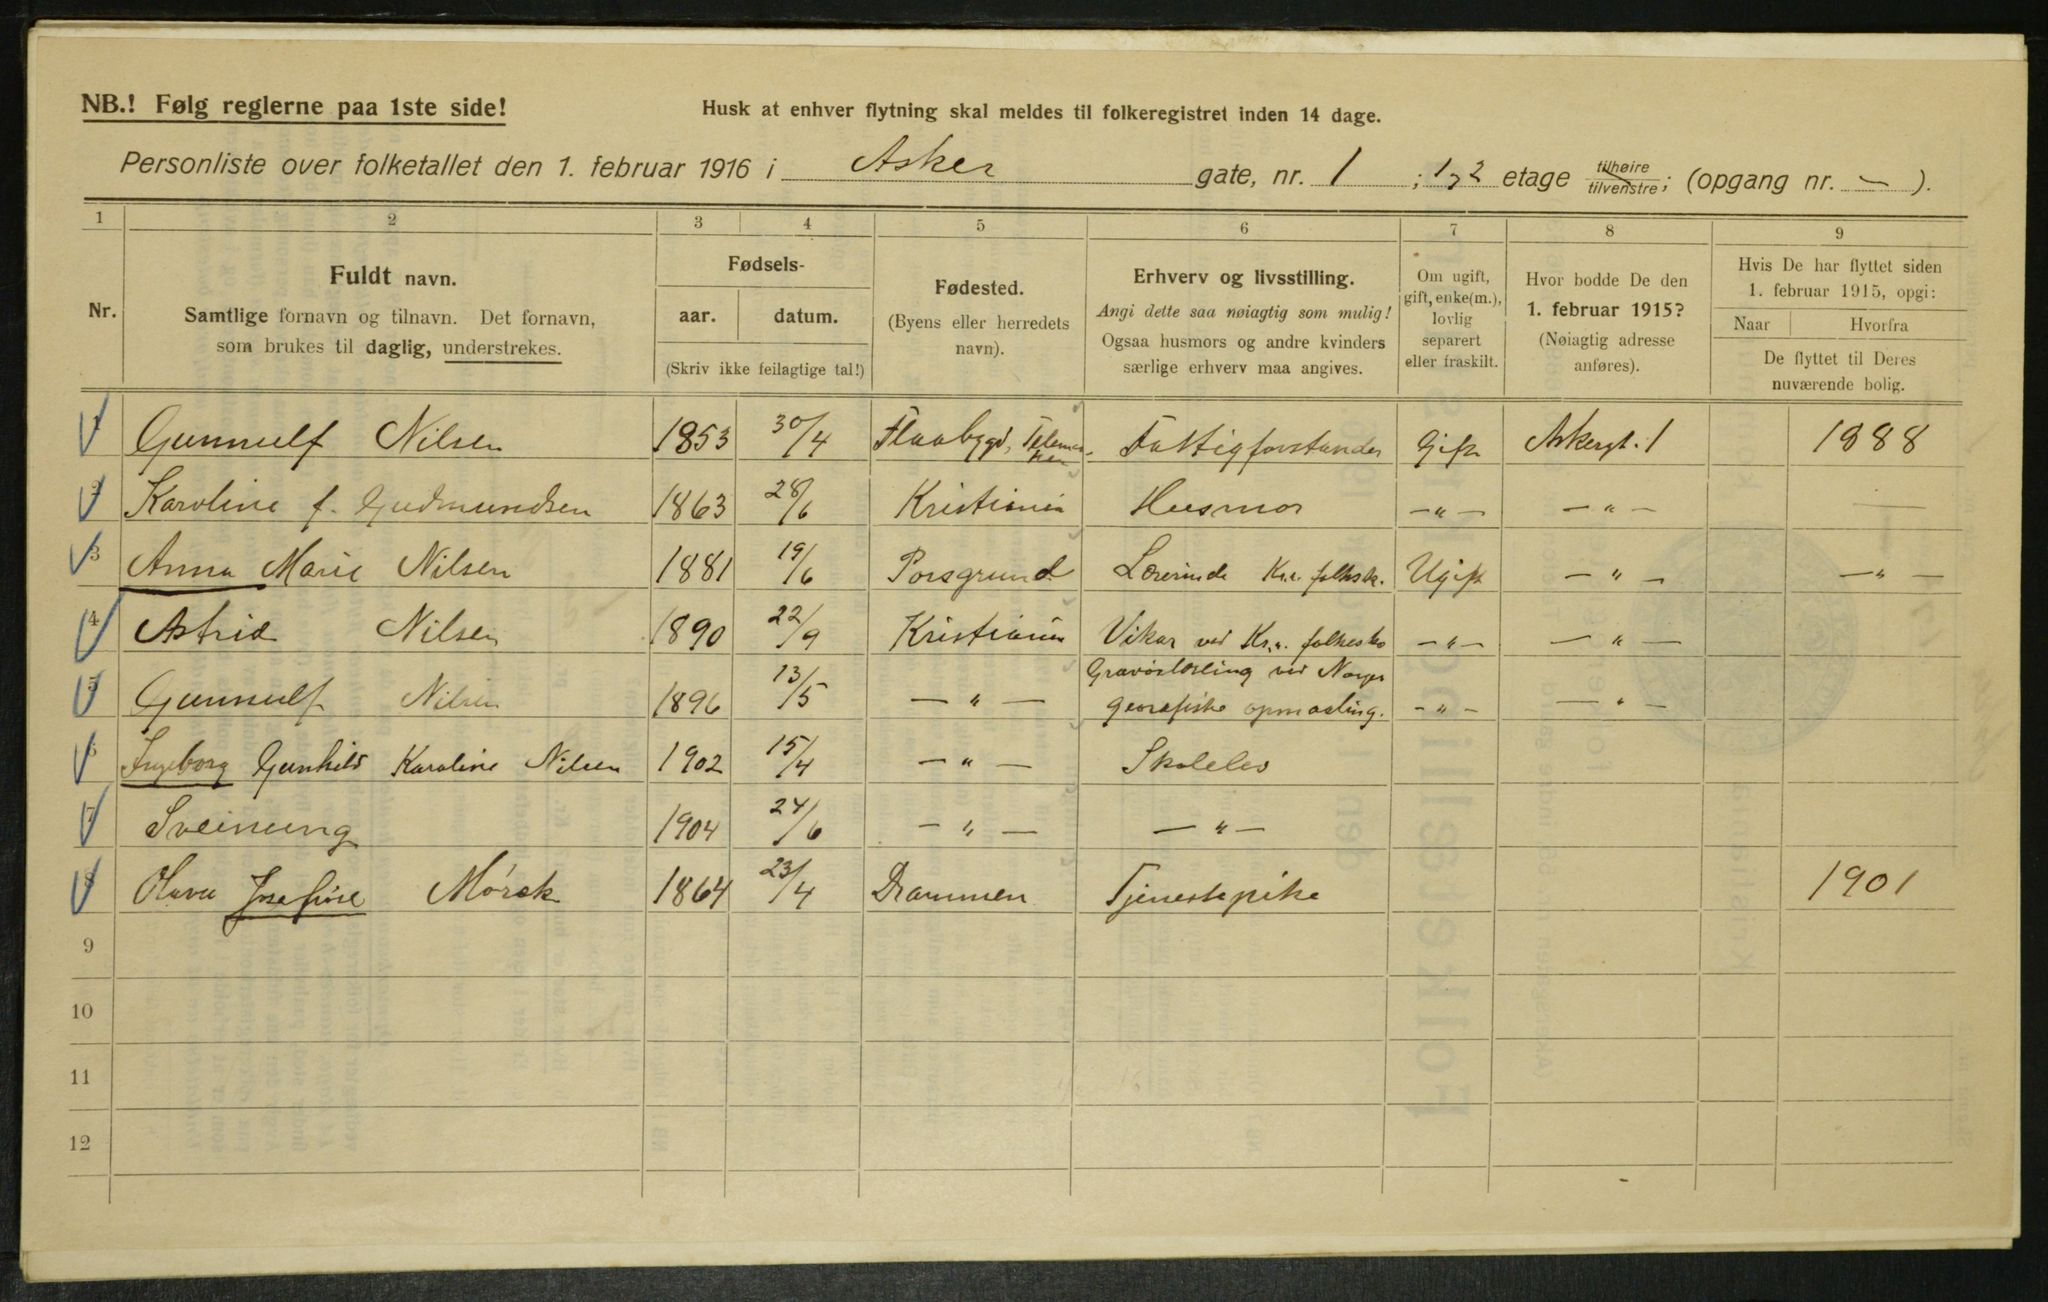 NB.! Følg reglerne paa 1ste side!
Husk at enhver flytning skal meldes til folkeregistret inden 14 dage.
Personliste over folketallet den 1. februar 1916 i Asker gate, nr. 1 ; 1,2 etage tilhøire tilvenstre; (opgang nr. — ).
1 2 3 4 5 6 7 8 9
Nr.
Fuldt navn.
Samtlige fornavn og tilnavn. Det fornavn,
som brukes til daglig, understrekes.
Fødsels-
aar. datum.
(Skriv ikke feilagtige tal!)
Fødested.
(Byens eller herredets
navn).
Erhverv og livsstilling.
Angi dette saa nøiagtig som mulig!
Ogsaa husmors og andre kvinders
særlige erhverv maa angives.
Om ugift,
gift, enke(m.),
lovlig
separert
eller fraskilt.
Hvor bodde De den
1. februar 1915?
(Nøiagtig adresse
anføres).
Hvis De har flyttet siden
1. februar 1915, opgi:
Naar Hvorfra
De flyttet til Deres
nuværende bolig.
1 Gunnulf Nilsen 1853 30/4 Flaabygd, Telemarken Fattigforstander Gift Askergt. 1 1888
2 Karoline f. Gudmundsen 1863 28/6 Kristiania Husmor —"— —"— —
3 Anna Marie Nilsen 1881 19/6 Porsgrund Lærerinde Kr.a. folksk. Ugift —"— —"—
4 Astrid Nilsen 1890 22/9 Kristiania Vikar ved Kr.a. folkesko —"— —"—
5 Gunnulf Nilsen 1896 13/5 —"— Gravørlærling ved Norges
geografiske opmaaling. —"— —"—
6 Ingeborg Gunhild Karoline Nilsen 1902 15/4 —"— Skoleelev
7 Sveinung 1904 24/6 —"— —"—
8 Olava Josefine Mørck 1864 23/4 Drammen Tjenestepike 1901
9
10
11
12